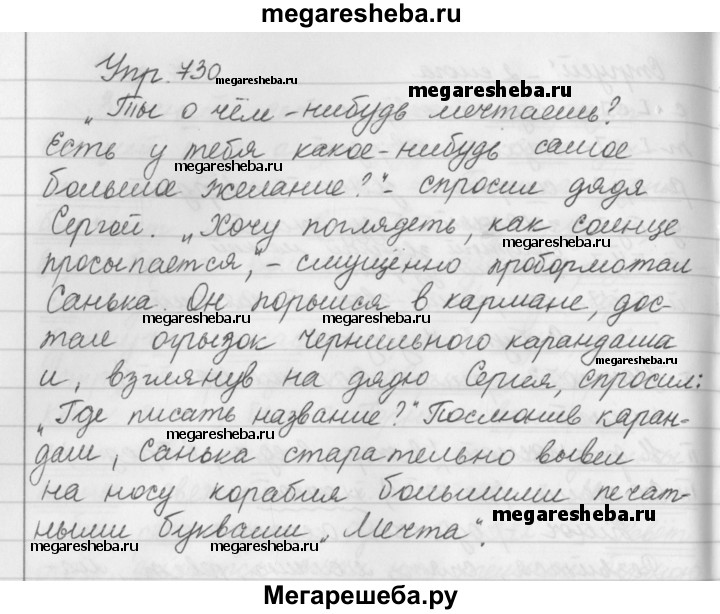 megaresheba.ru
Упр. 730
megaresheba.ru
megaresheba.ru
„Ты о чём-нибудь мечтаешь?
Есть у тебя какое-нибудь самое
megaresheba.ru
большое желание?"- спросил дядя
Сергей. „Хочу поглядеть, как солнце
megaresheba.ru
просыпается,"- смущённо пробормотал
megaresheba.ru
Санька. Он порылся в кармане, дос-
megaresheba.ru megaresheba.ru
тал огрызок чернильного карандаша
megaresheba.ru
и, взглянув на дядю Сергея, спросил:
„Где писать название?" Послюнив каран-
megaresheba.ru
даш, Санька старательно вывел
на носу корабля большими печат-
megaresheba.ru
ными буквами „Мечта".
megaresheba.ru megaresheba.ru
Мегарешеба.ру